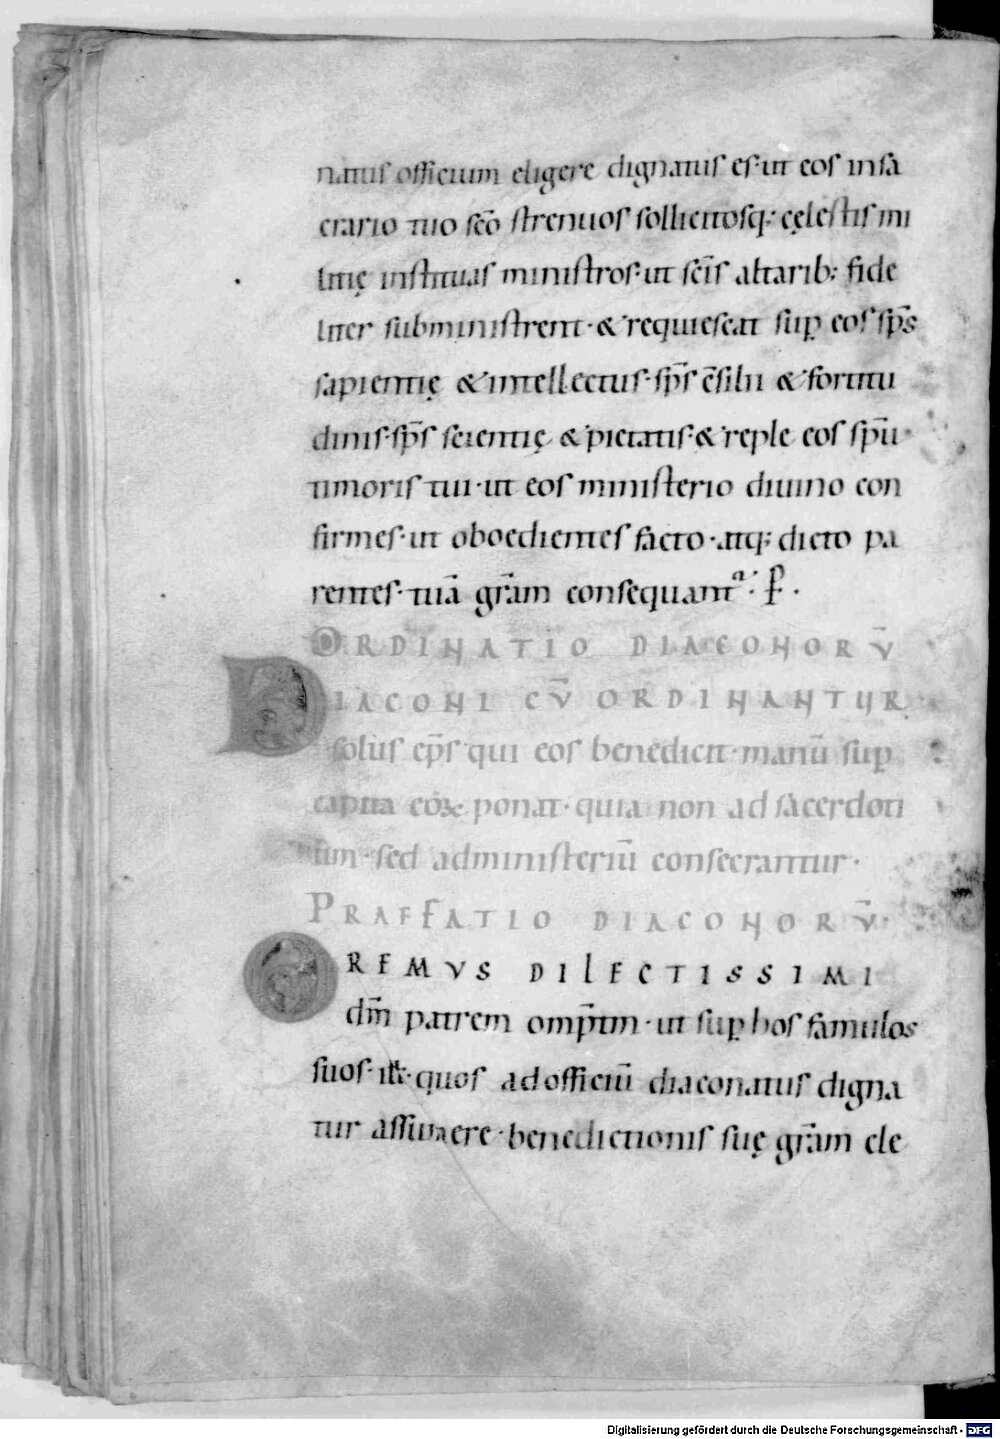 natus officium eligere dignatus es· ut eos in sa
crario tuo sc̄o strenuos sollicitosq; cęlestis mi
litię instituas ministros· ut sc̄is altarib; fide
liter subministrent· & requiescat sup̱ eos sp̄s
sapientię & intellectus· sp̄s c̄silii & fortitu
dinis· sp̄s scientię & pietatis· & reple eos sp̄u
timoris tui· ut eos ministerio diuino con
firmes· ut oboedientes facto· atq; dicto pa
rentes· tuā gr̄am consequant᷑·
ORDINATIO DIACONORV̄
DIACONI CV̄ ORDINANTUR
solus ep̄s qui eos benedicit· manū sup̱
capita eoꝝ ponat· quia non ad sacerdoti
um· sed ad ministeriū consecrantur·
PRAEFATIO DIACONORV̄·
OREMVS DILECTISSIMI
dm̄ patrem omp̄tm· ut sup̱ hos famulos
suos· ill· quos ad officiū diaconatus digna
tur assumere· benedictionis suę gr̄am cle
Digitalisierung gefördert durch die Deutsche Forschungsgemeinschaft - DFG